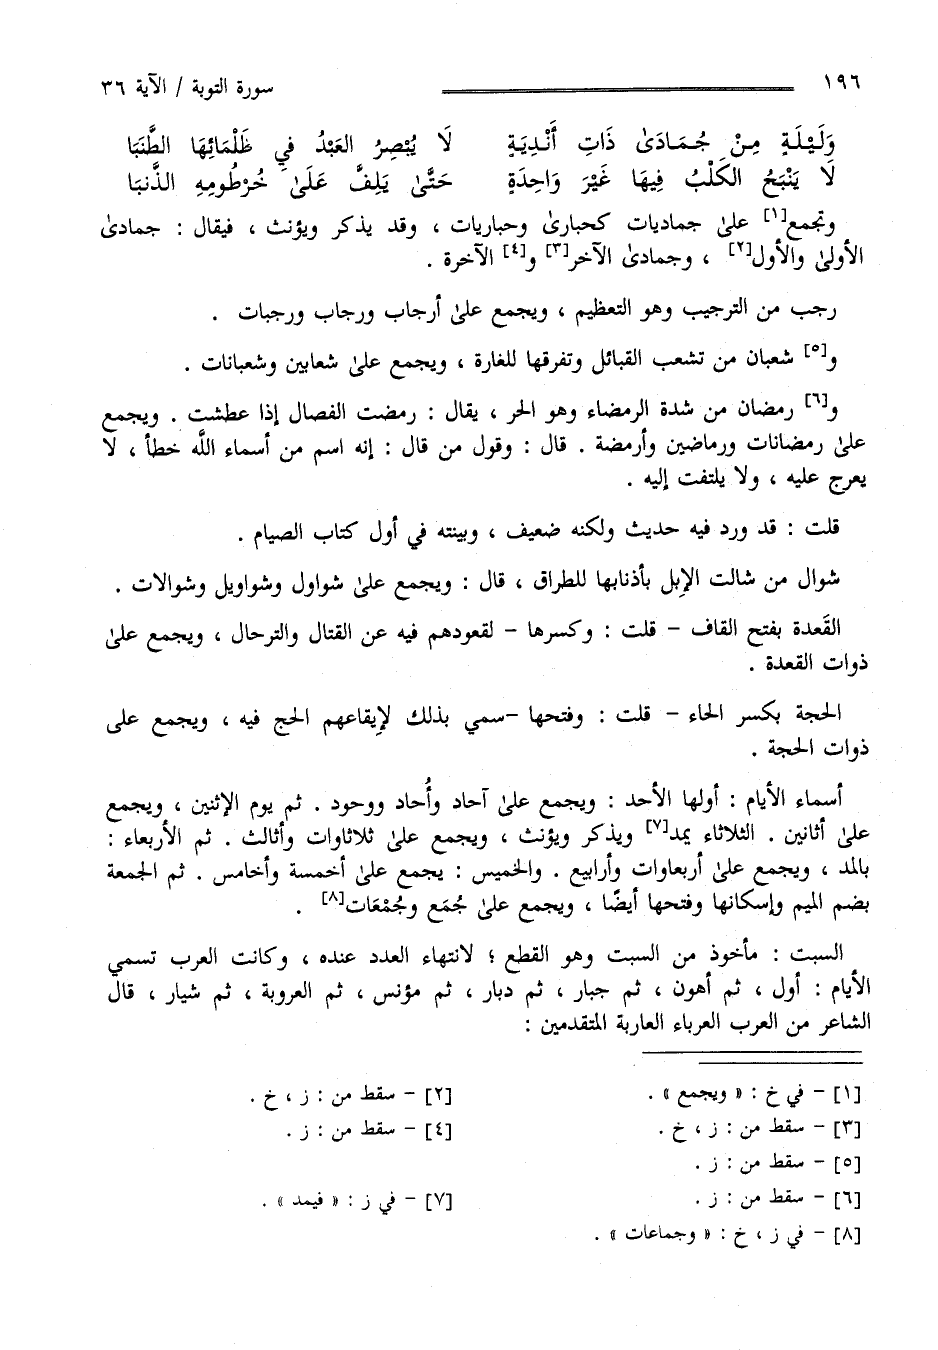 ١٩٦ سورة التوبة / الآية ٣٦
وَلَيْلَةٍ مِنْ جُمَادَىٰ ذَاتِ أَنْدِيَةٍ لَا يُبْصِرُ العَبْدُ فِي ظَلْمَائِهَا الطَّنَبَا
لَا يَنْبَحُ الكَلْبُ فِيهَا غَيْرَ وَاحِدَةٍ حَتَّىٰ يَلِفَّ عَلَىٰ خُرْطُومِهِ الذَّنبَا
وتجمع[١] علىٰ جماديات كحبارىٰ وحباريات ، وقد يذكر ويؤنث ، فيقال : جمادىٰ
الأولىٰ والأول[٢] ، وجمادىٰ الآخر[٣] و[٤] الآخرة .
رجب من الترجيب وهو التعظيم ، ويجمع علىٰ أرجاب ورجاب ورجبات .
و[٥] شعبان من تشعب القبائل وتفرقها للغارة ، ويجمع علىٰ شعابين وشعبانات .
و[٦] رمضان من شدة الرمضاء وهو الحر ، يقال : رمضت الفصال إذا عطشت . ويجمع
علىٰ رمضانات ورماضين وأرمضة . قال : وقول من قال : إنه اسم من أسماء اللَّه خطأ ، لا
يعرج عليه ، ولا يلتفت إليه .
قلت : قد ورد فيه حديث ولكنه ضعيف ، وبينته في أول كتاب الصيام .
شوال من شالت الإبل بأذنابها للطراق ، قال : ويجمع علىٰ شواول وشواويل وشوالات .
القَعدة بفتح القاف – قلت : وكسرها – لقعودهم فيه عن القتال والترحال ، ويجمع علىٰ
ذوات القعدة .
الحجة بكسر الحاء – قلت : وفتحها –سمي بذلك لإيقاعهم الحج فيه ، ويجمع على
ذوات الحجة .
أسماء الأيام : أولها الأحد : ويجمع علىٰ آحاد وأُحاد ووحود . ثم يوم الإثنين ، ويجمع
علىٰ أثانين . الثلاثاء يمد[٧] ويذكر ويؤنث ، ويجمع علىٰ ثلاثاوات وأثالث . ثم الأربعاء :
بالمد ، ويجمع علىٰ أربعاوات وأرابيع . والخميس : يجمع علىٰ أخمسة وأخامس . ثم الجمعة
بضم الميم وإسكانها وفتحها أيضًا ، ويجمع علىٰ جُمَع وجُمْعَات[٨] .
السبت : مأخوذ من السبت وهو القطع ؛ لانتهاء العدد عنده ، وكانت العرب تسمي
الأيام : أول ، ثم أهون ، ثم جبار ، ثم دبار ، ثم مؤنس ، ثم العروبة ، ثم شيار ، قال
الشاعر من العرب العرباء العاربة المتقدمين :
[١] – في خ : « ويجمع » . [٢] – سقط من : ز ، خ .
[٣] – سقط من : ز ، خ . [٤] – سقط من : ز .
[٥] – سقط من : ز .
[٦] – سقط من : ز . [٧] – في ز : « فيمد » .
[٨] – في ز ، خ : « وجماعات » .